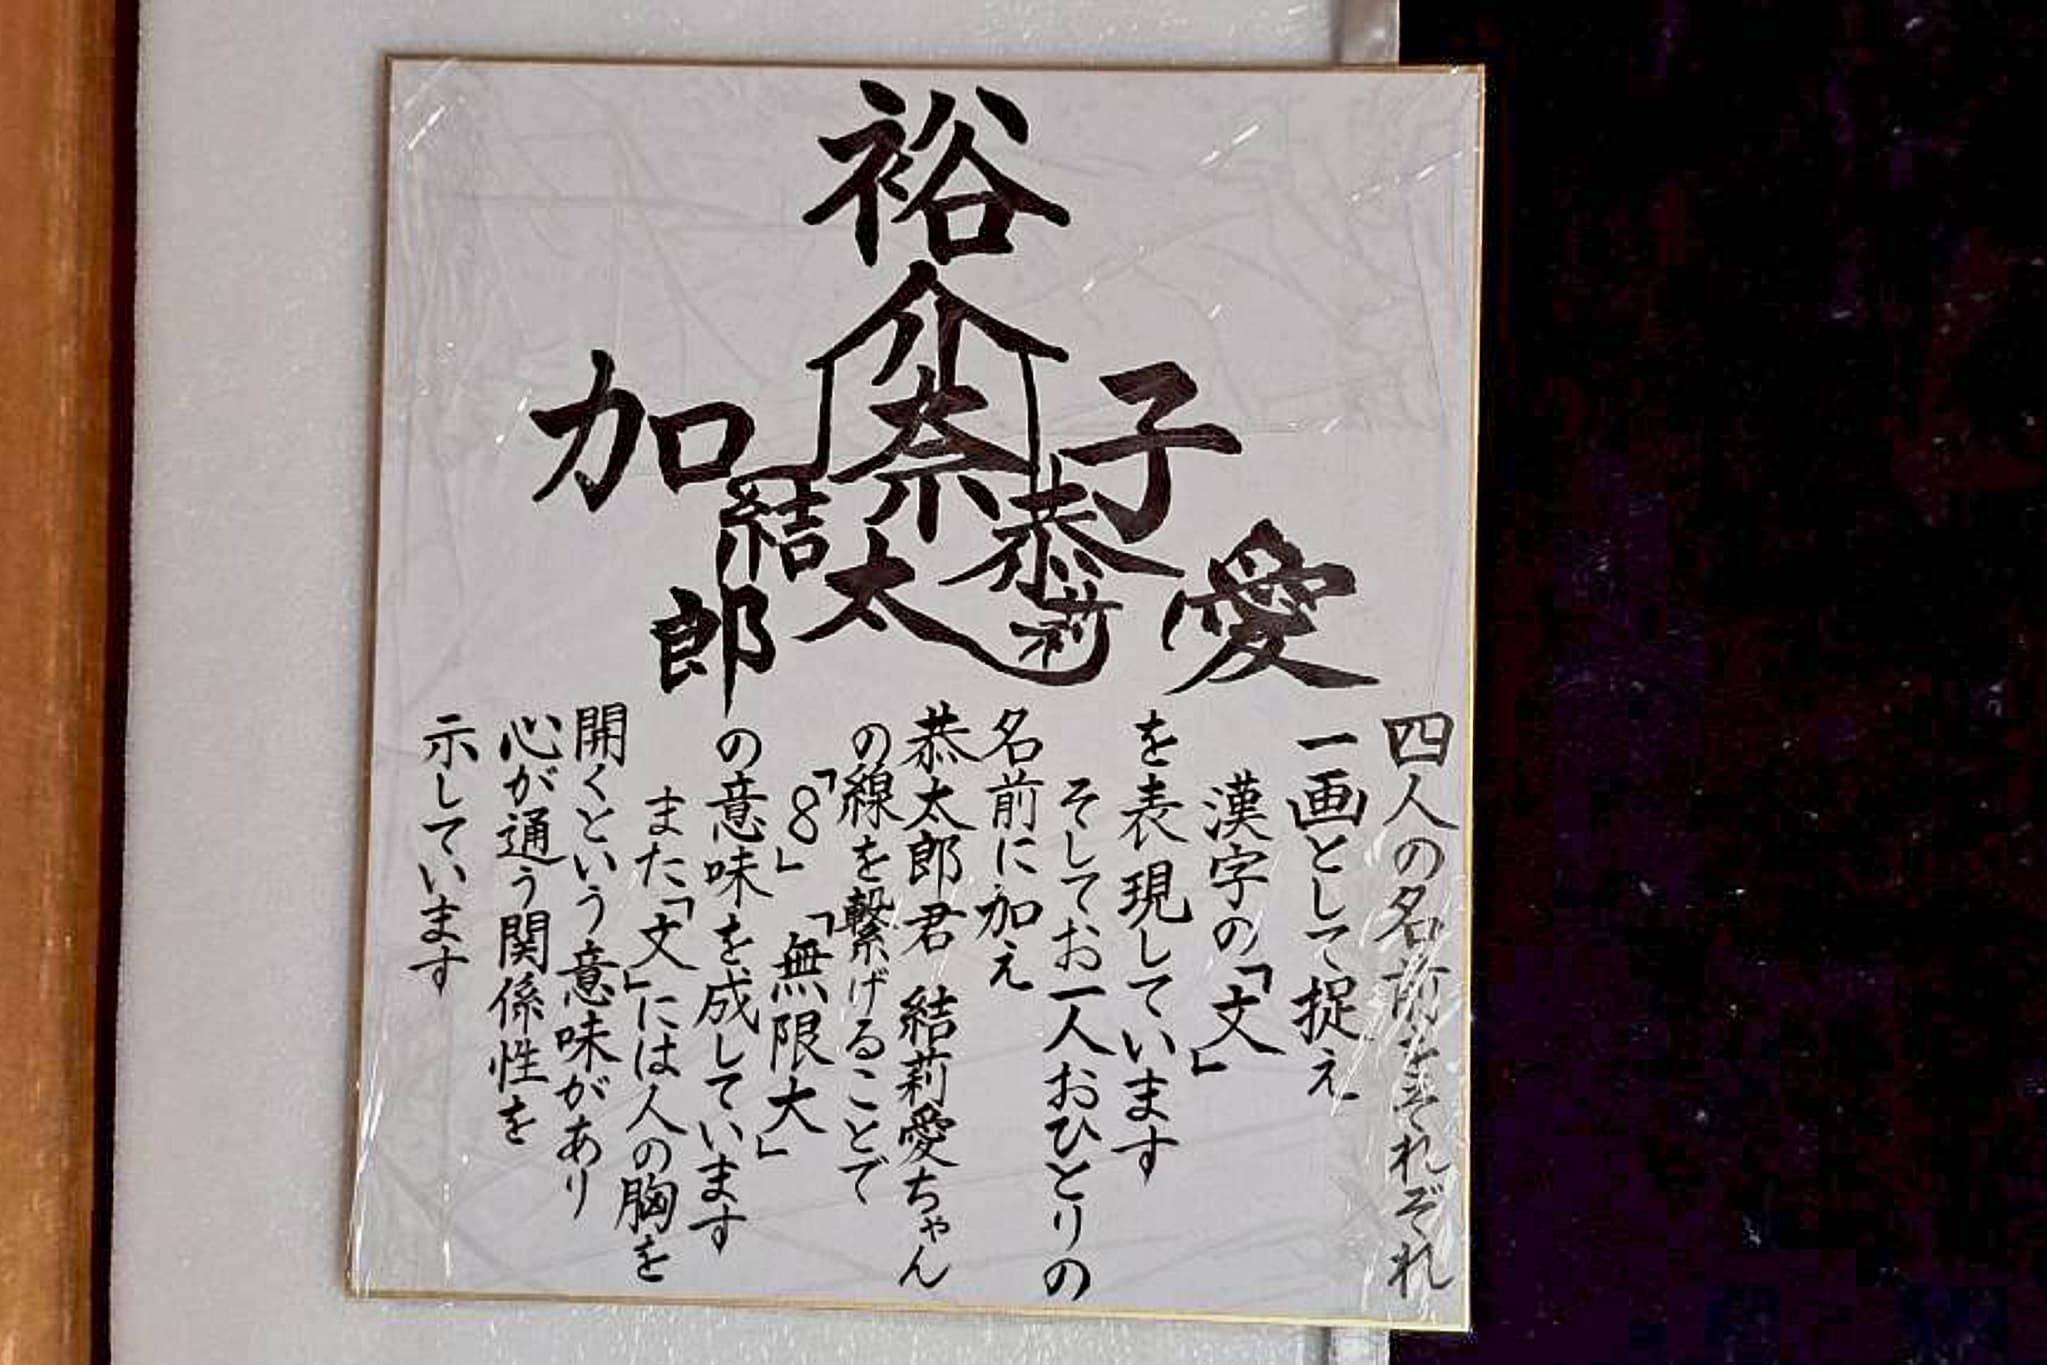 裕
介
加奈子
結恭
郎太莉愛
四人の名前をそれぞれ
一画として捉え
漢字の「文」
を表現しています
そしてお一人おひとりの
名前に加え
恭太郎君 結莉愛ちゃん
の線を繋げることで
「8」「無限大」
の意味を成しています
また「文」には人の胸を
開くという意味があり
心が通う関係性を
示しています